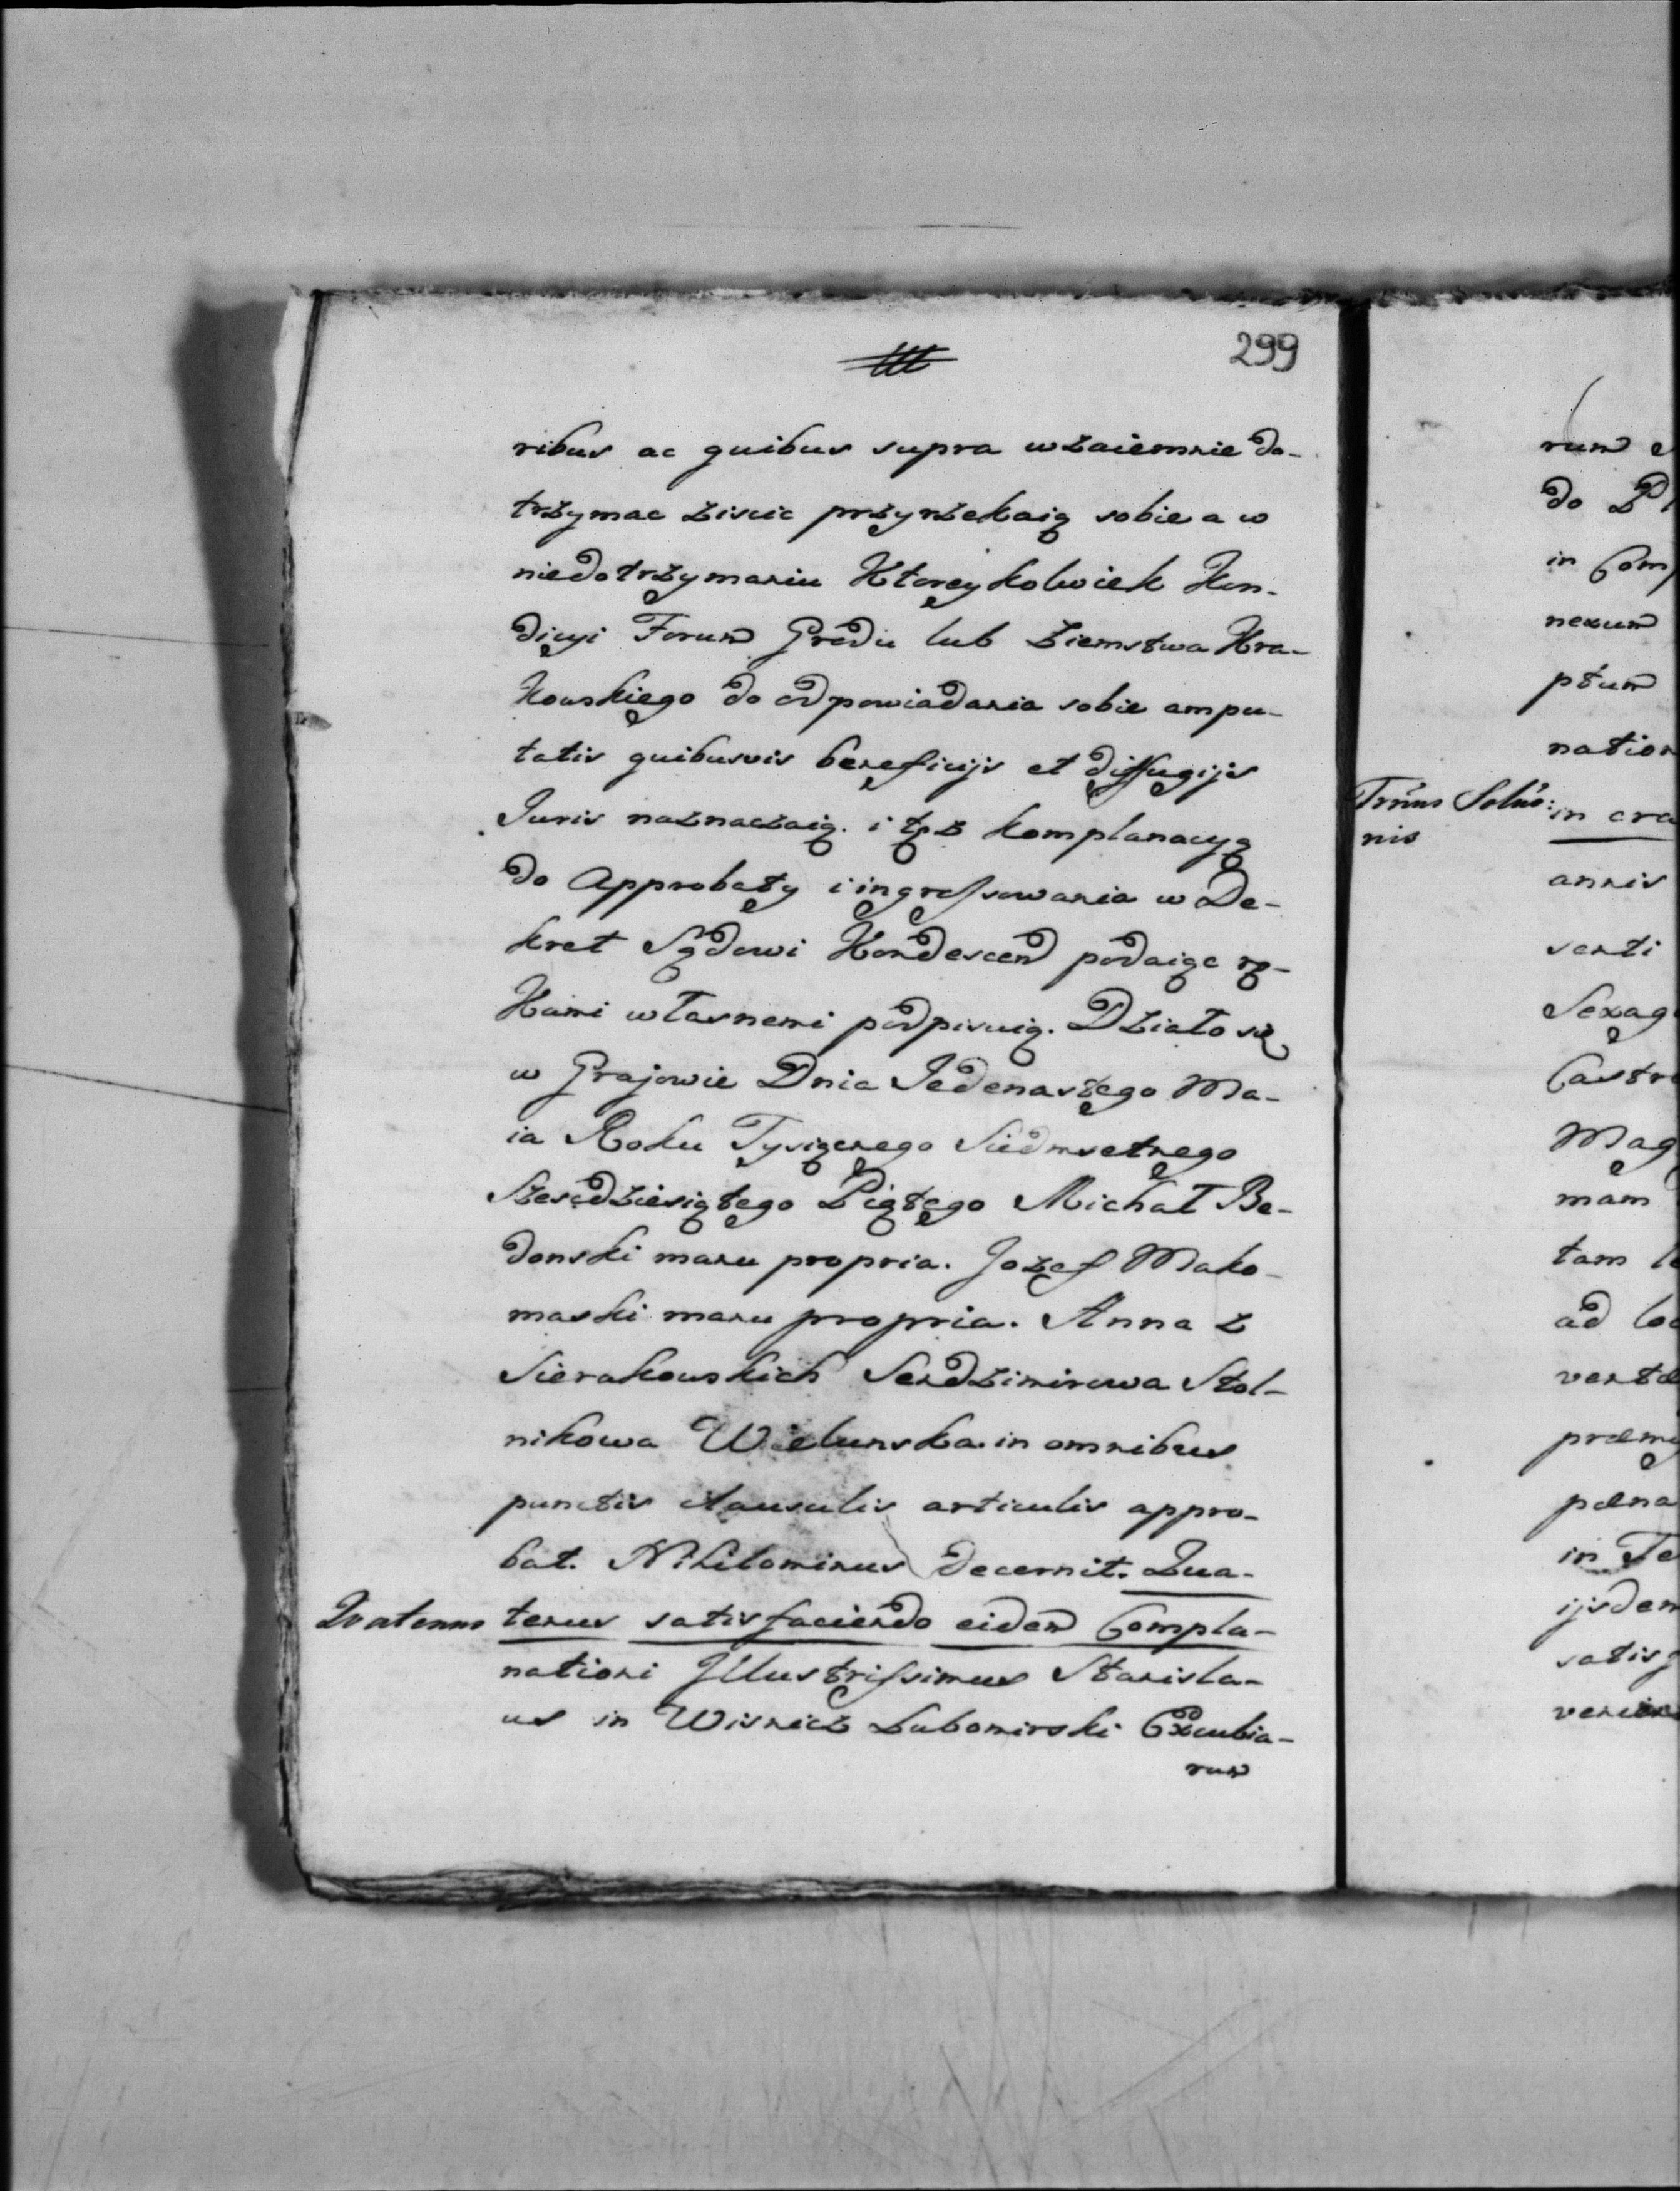 299
ribus ac quibus supra wzaiemnie do-
trzymac ziscic przyrzekaią sobie a w
niedotrzymaniu Ktoreykolwiek Kon-
dicyi Forum Grodu lub Ziemstwa Kra-
kowskiego do odpowiadania sobie ampu-
tatis quibusvis beneficijs et diffugijs
Juris naznaczaią. i tęz komplanacyą
do Approbaty i ingrossowania w De-
kret Sądowi Kondescen podaiąc rę-
Kami własnemi podpisuią. Działo się
w Grajowie Dnia Jedenastego Ma-
ia Roku Tysiącnego Siedmsetnego
Szescdziesiątego Piątego Michał Be-
donski manu propria. Jozef Mako-
maski manu propria. Anna z
Sierakowskich Sendzimirowa Stol-
nikowa Wielunska in omnibus
punctis clausulis articulis appro-
bat. Nihilominus decernit. Qua-
Quatenus
tenus satisfaciendo eidem Compla-
nationi Illustrissimus Stanisla-
us in Wisnicz Lubomirski Excubia-
rum
rum
do
in Com
nexum
ptum
nation
Trnus Solus:
nis
in cra
annis
senti
Sexag
Castr
Mag
mam
tam
ad loc
præm
pæna
in Te
ijsdem
satisf